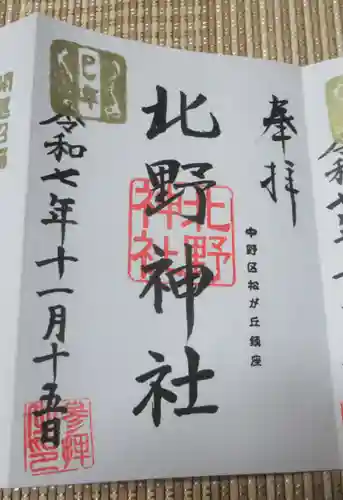 奉拝
中野区松が丘鎮座
北野神社
北野神社
巳年
令和七年十一月十五日
参拝